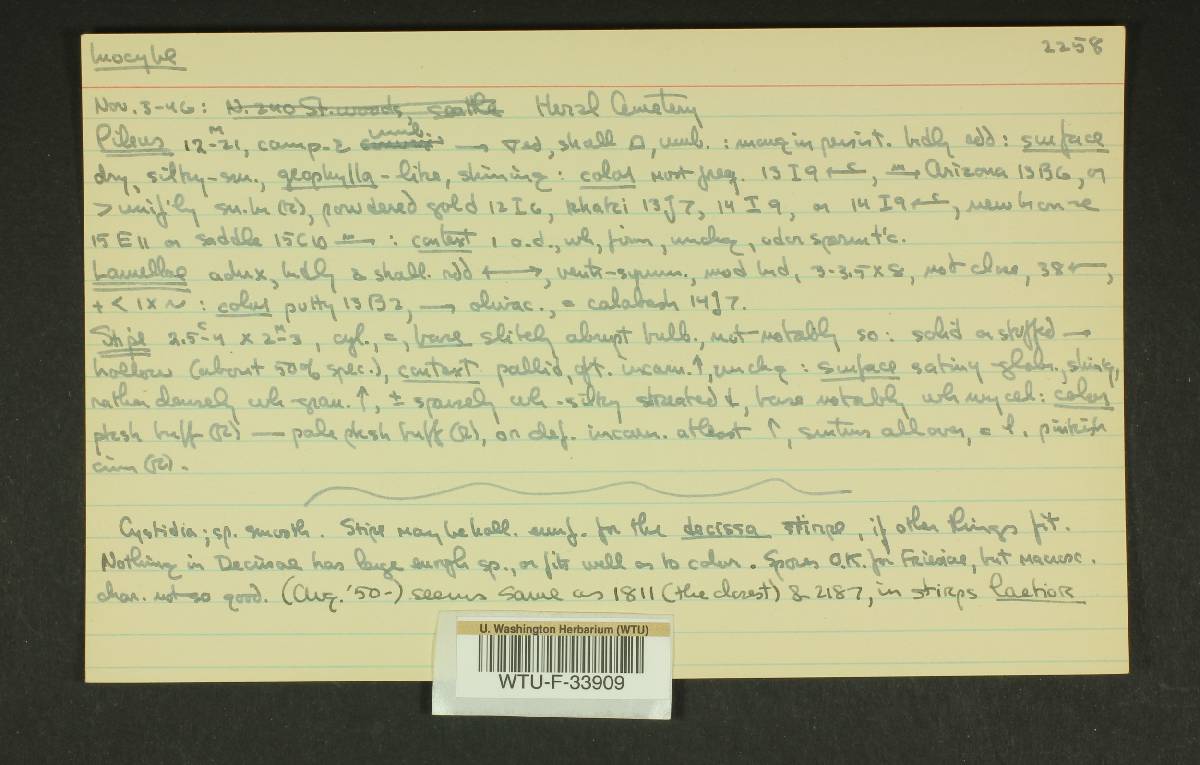 Inocybe 2258
Nov. 3-46: N. 240 St. woods, Seattle Herzl Cemetery
Pileus 12-21, camp-2 umb. → , shall , umb. : margin persist. : surface
dry, silky-sm., geophylla-like, shining : color most freq. 13 I 9, → Arizona 13B6, or
> unif'ly sn.br (R), powdered gold 12I6, khaki 13J7, 14 I 9, or 14 I 9, new bronze
15 E 11 or saddle 15C10 : context 1 o.d., wh, firm, unchg, odor spermt'c.
Lamellae adnx, bdly & shall. ←→, ventr-symm., mod brd, 3-3.5 x 8, not close, 38,
+ < 1 x ~ : color putty 13B2, → olivac., = calabash 14J7.
Stipe 2.5-4 x 2-3, cyl., =, base slitely abrupt bulb., not notably so : solid or stuffed →
hollow (about 50% spec.), context pallid, oft. incarn. ↑, unchg : surface satiny-glabr., shing,
rather densely wh-gran. ↑, ± sparsely wh-silky streated ↓, base notably wh mycel : color
pksh buff (R) — pale pksh buff (R), or def. incarn. at least ↑, smtms all over, = l. pinkish
cinn (R).
Cystidia; sp. smooth. Stipe may be hall. enuf. for the decissa stirps, if other things fit.
Nothing in Decissae has large enough sp., or fits well as to color. Spores O.K. for Friesiae, but macrosc.
char. not so good. (Aug. '50-) seems same as 1811 (the closest) & 2187, in stirps Laetior
U. Washington Herbarium (WTU)
WTU-F-33909